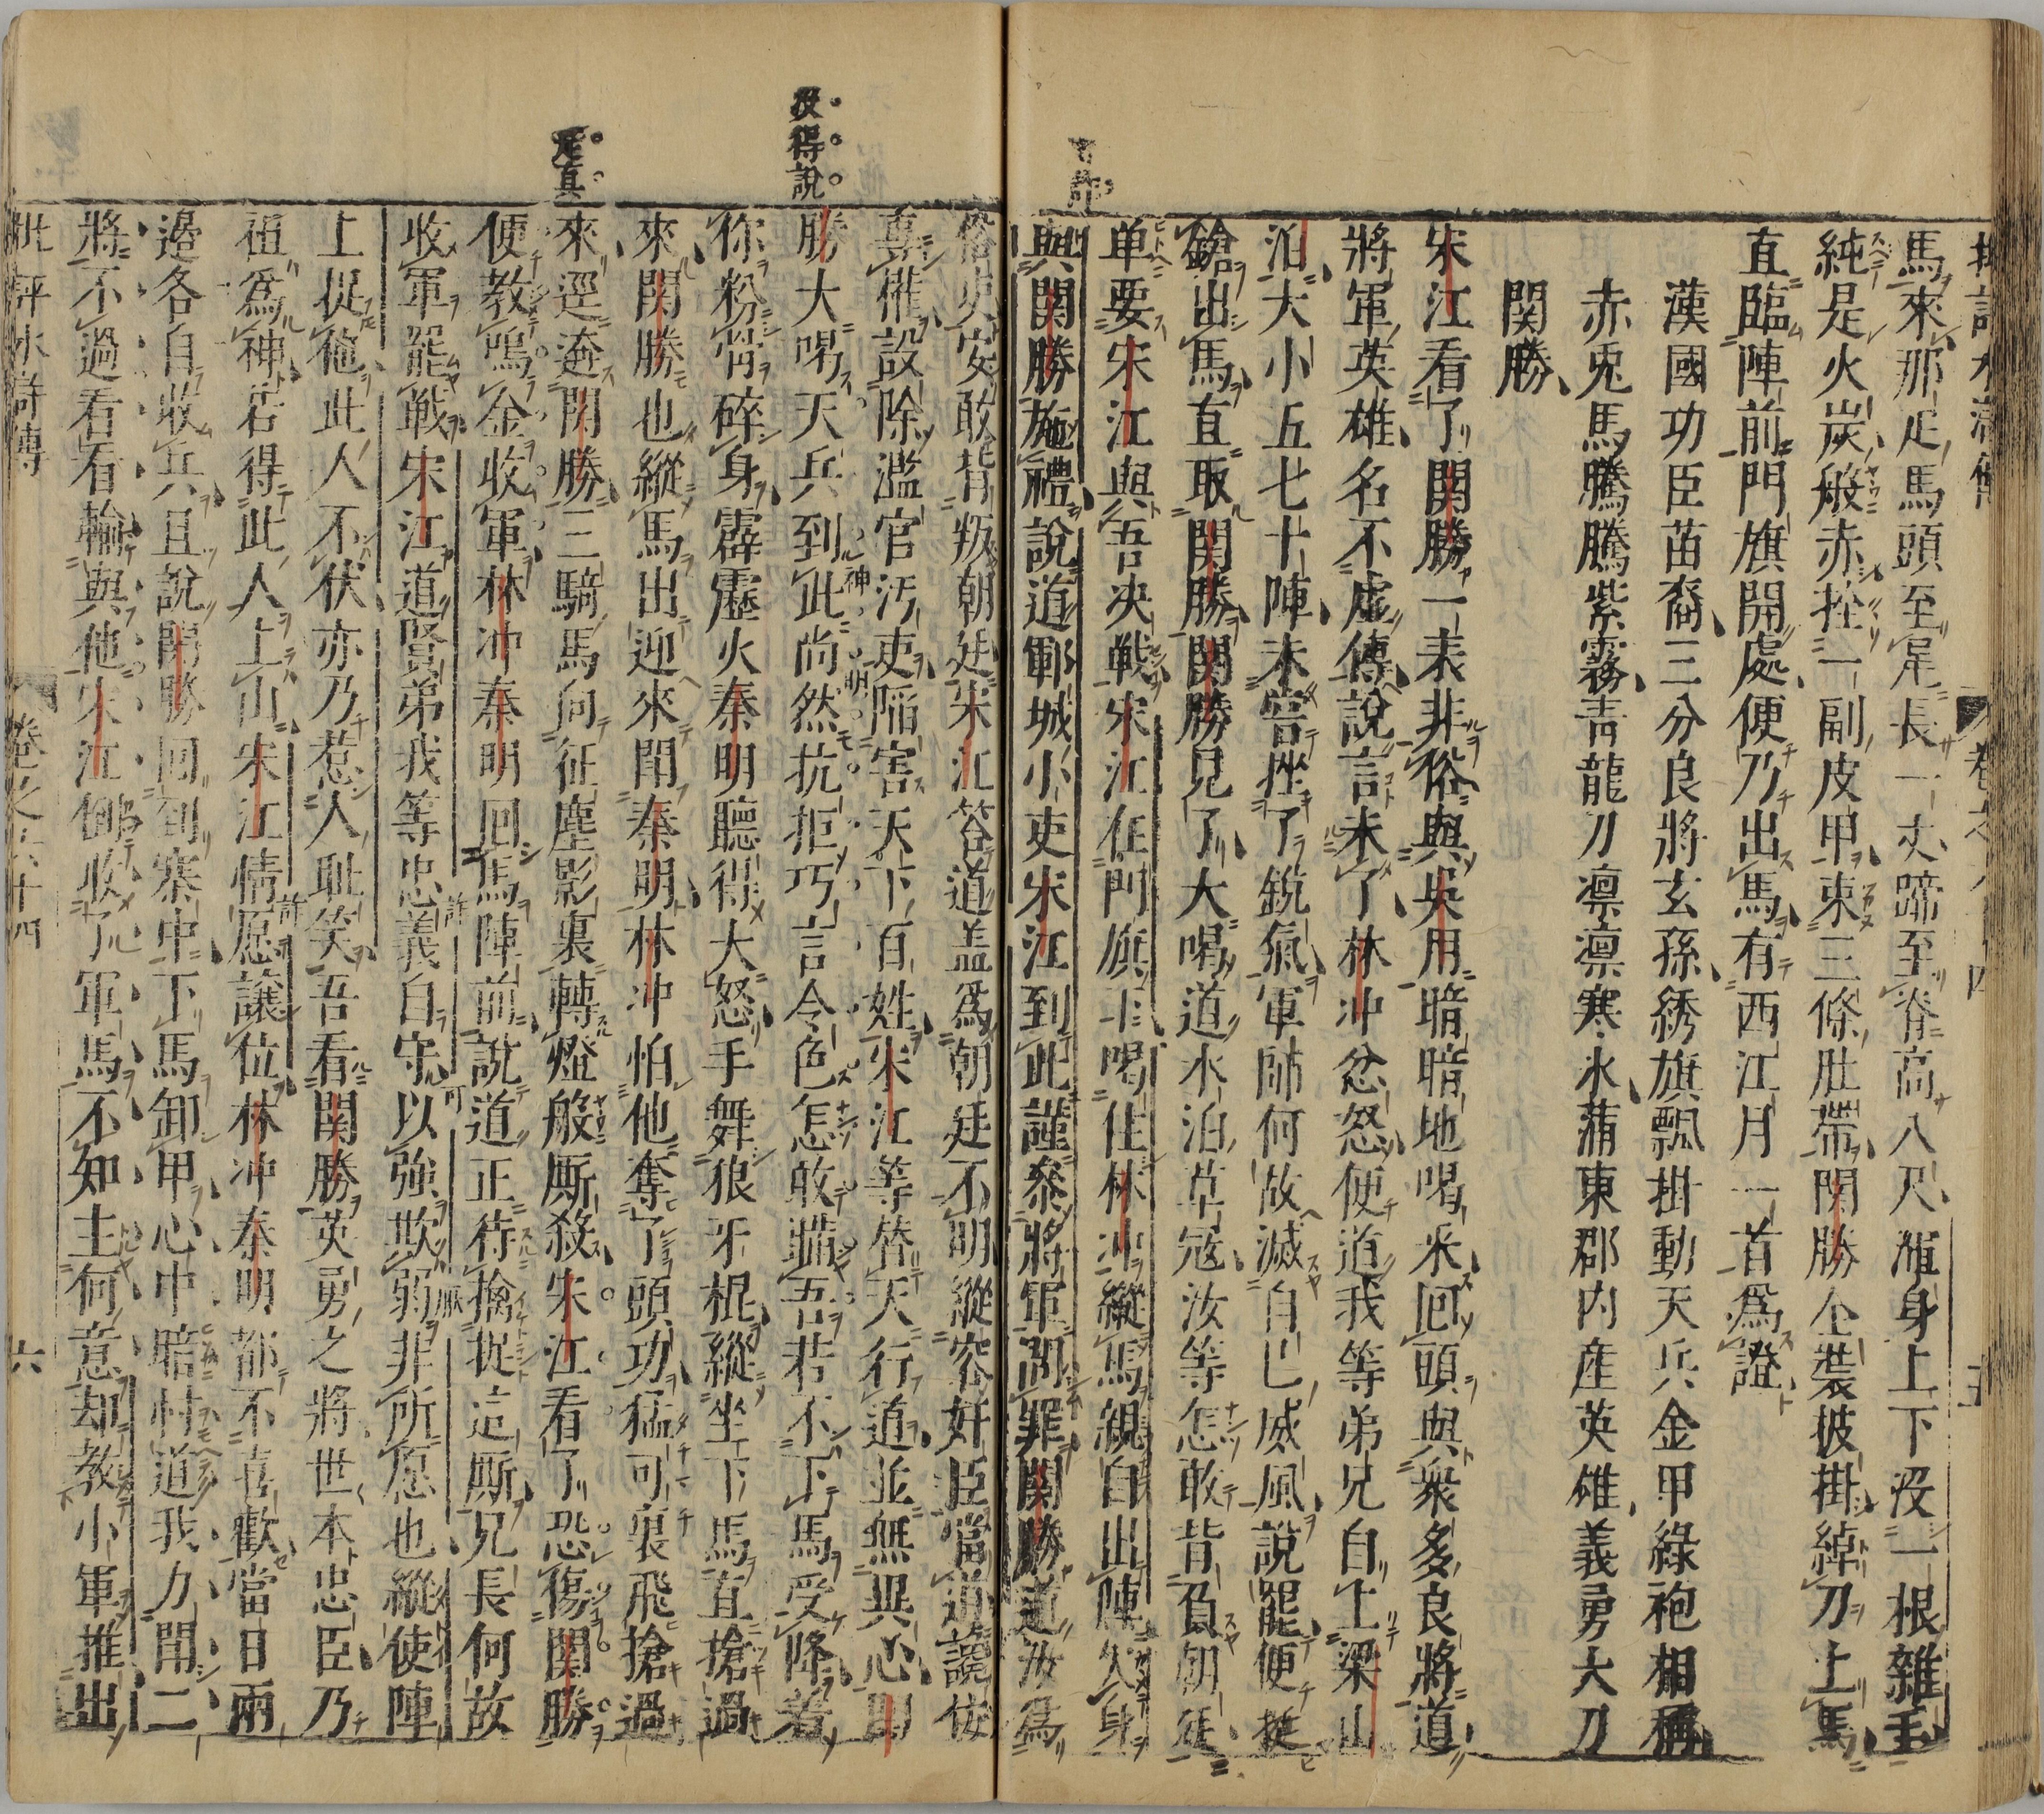 馬來那疋馬頭至尾長一丈蹄至脊高八尺渾身上下沒一根雜毛
純是火炭般赤拴一副皮甲束三條肚帶関勝全裝披掛綽刀上馬
直臨陣前門旗開處便乃出馬有西江月一首爲證
漢國功臣苗裔三分良將玄孫綉旗飄掛動天兵金甲綠袍相稱
赤兎馬騰騰紫霧青龍刀凛凛寒氷蒲東郡内産英雄義勇大刀
関勝
宋江看了関勝一表非俗與吳用暗暗地喝采回頭與衆多良將道
將軍英雄名不虚傳說言未了林冲忿怒便道我等弟兄自上梁山
泊大小五七十陣未甞挫了銳氣軍師何故滅自己威風說罷便挺
鎗出馬直取関勝関勝見了大喝道水泊草寇汝等怎敢背負朝廷
单要宋江與吾决戰宋江在門旗下喝住林冲縱馬親自出陣欠身
與関勝施禮說道鄆城小吏宋江到此謹叅將軍問罪関勝道汝爲
俗吏安敢背叛朝廷宋江答道盖爲朝廷不明縱容奸臣當道讒佞
專權設除濫官汚吏陷害天下百姓宋江等替天行道並無異心関
勝大喝天兵到此尚然抗拒巧言令色怎敢瞞吾若不下馬受降着
你粉骨碎身霹靂火秦明聽得大怒手舞狼牙棍縱坐下馬直搶過
來関勝也縱馬出迎來閗秦明林冲怕他奪了頭功猛可裏飛搶過
來逕奔関勝三騎馬向征塵影裏轉燈般厮殺宋江看了恐傷関勝
便教鳴金收軍林冲秦明回馬陣前說道正待擒捉這厮兄長何故
收軍罷戰宋江道賢弟我等忠義自守以強欺弱非所愿也縱使陣
上捉他此人不伏亦乃惹人耻笑吾看関勝英勇之將世本忠臣乃
祖爲神若得此人上山宋江情愿讓位林冲秦明都不喜歡當日兩
邉各自收兵且說関勝回到寨中下馬卸甲心中暗忖道我力閗二
將不過看看輸與他宋江倒收了軍馬不知主何意却教小軍推出
没得說
是真
批評水滸傳
卷之六十四
六